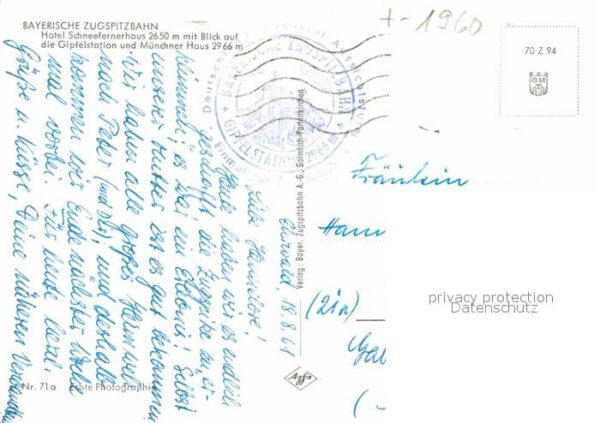 BAYERISCHE ZUGSPITZBAHN
Hotel Schneefernerhaus 2650 m mit Blick auf
die Gipfelstation und Münchner Haus 2966 m
+-1960
70 Z 94
BAYERISCHE ZUGSPITZBAHN
GIPFELSTATION 2966 m
Verlag: Bayer. Zugspitzbahn A.-G., Garmisch-Partenkirchen
Ehrwald, 18.8.61
Liebe Hannelore!
Heute haben wir es endlich
geschafft die Zugspitze zu er-
klimmen, es war ein Erlebnis! Selbst
unserer Mutter ist es gut bekommen
Wir haben alle großes Heimweh
nach Peter (und Dir), und deshalb
kommen wir Ende nächster Woche
mal vorbei. Für heute herzl.
Grüße u. Küsse, Deine näheren
Fräulein
Hann
(21a)
privacy protection
Datenschutz
Agfa
Nr. 71a Echte Photographie